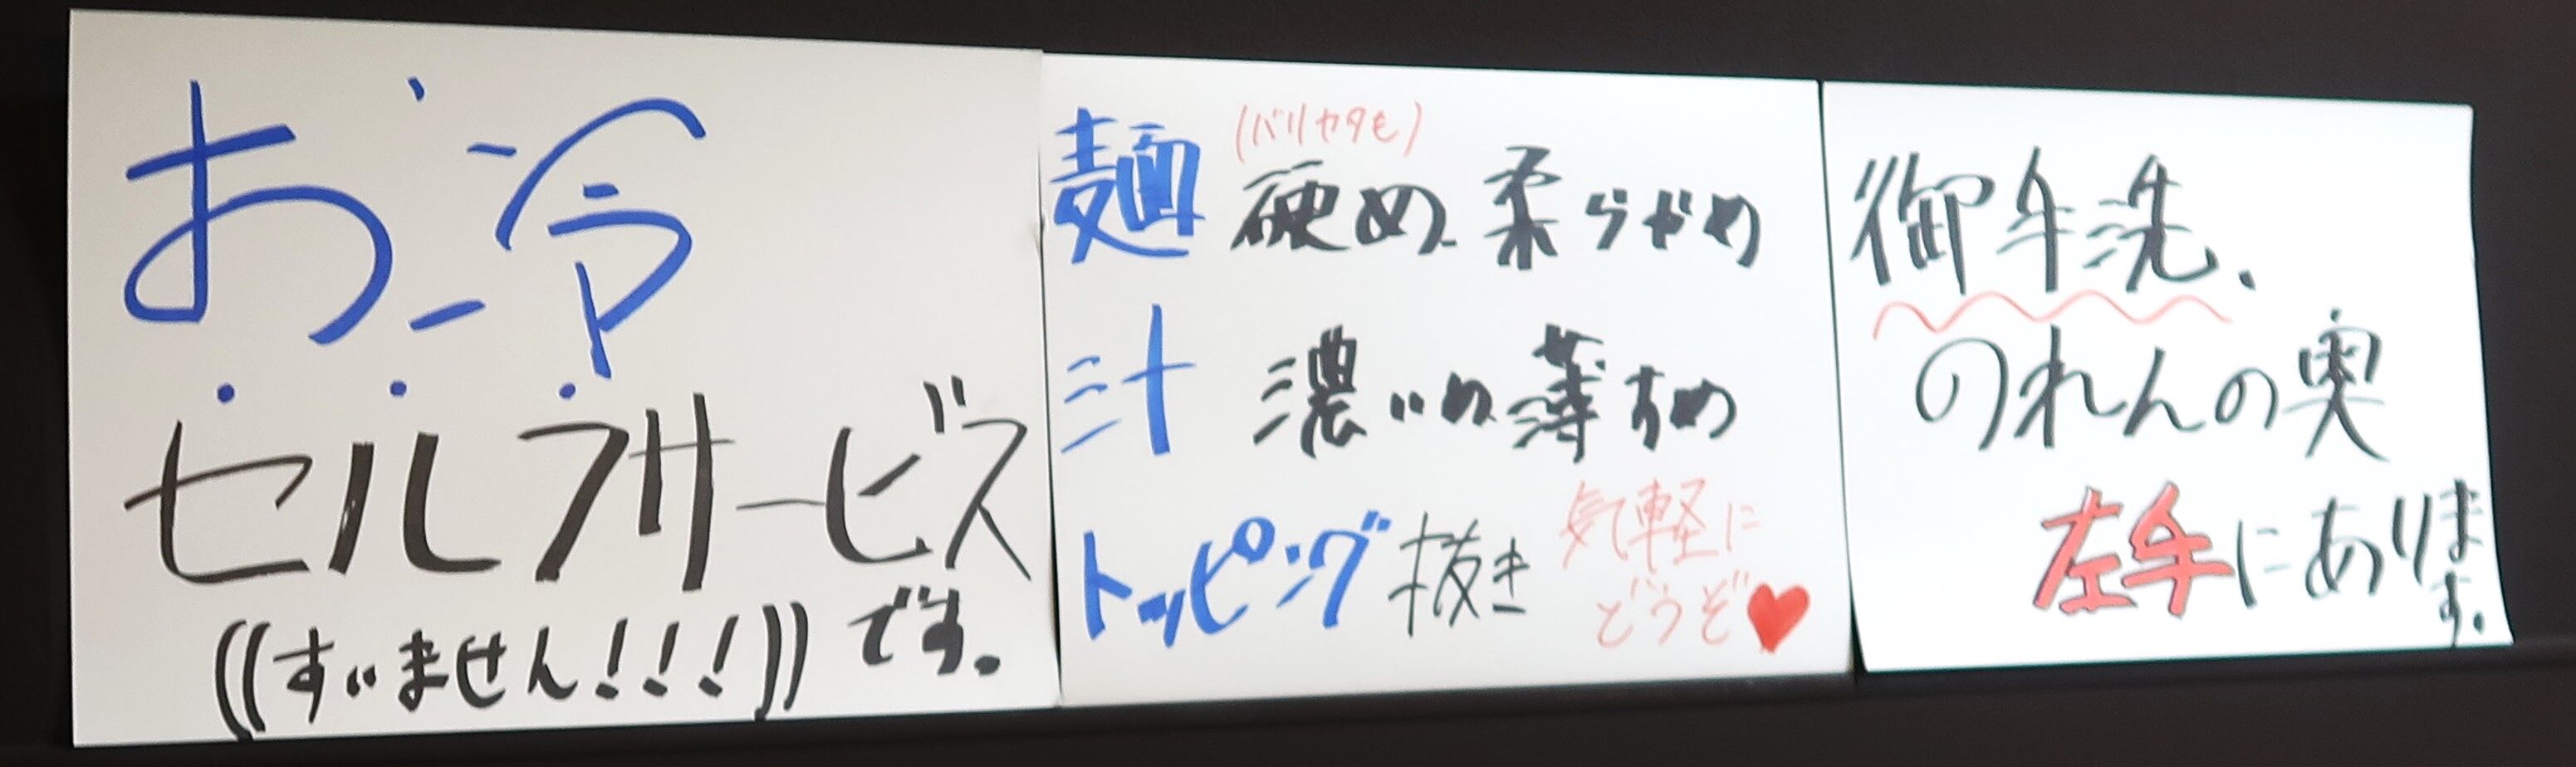 お冷
セルフサービス
です。
((すいません!!!))
麺 (バリカタも)
硬め 柔らかめ
汁 濃いめ 薄すめ
トッピング 抜き 気軽に
どうぞ♥
御手洗、
のれんの奥
左手にあります。